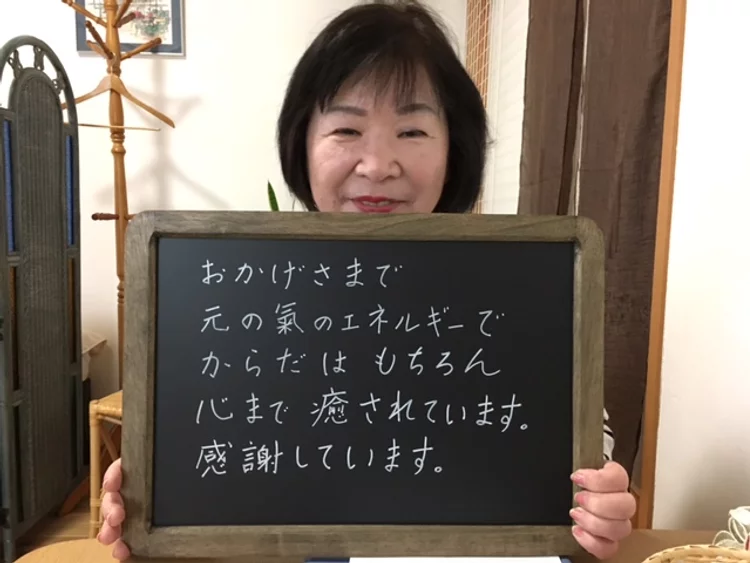 おかげさまで
元の氣のエネルギーで
からだは もちろん
心まで 癒されています。
感謝しています。